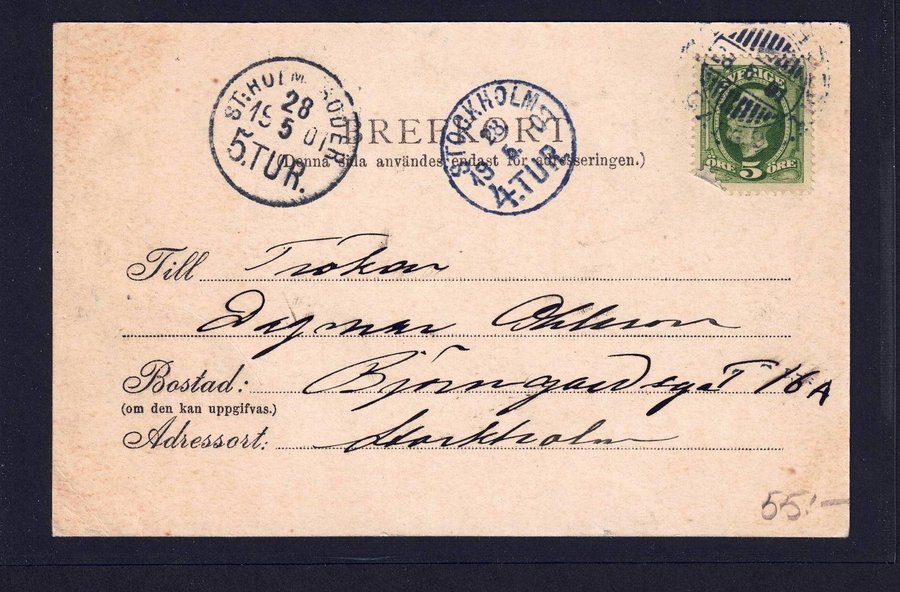 ST:HOLM SÖDER
28
19 5 01
5.TUR.
STOCKHOLM
28
19 5 01
4.TUR.
SVERIGE
ÖRE 5 ÖRE
BREFKORT
(Denna sida användes endast för adresseringen.)
Till Fröken
Dagmar Ohlsson
Bostad: Björngårdsgat 16A
(om den kan uppgifvas.)
Adressort: Stockholm
55:-